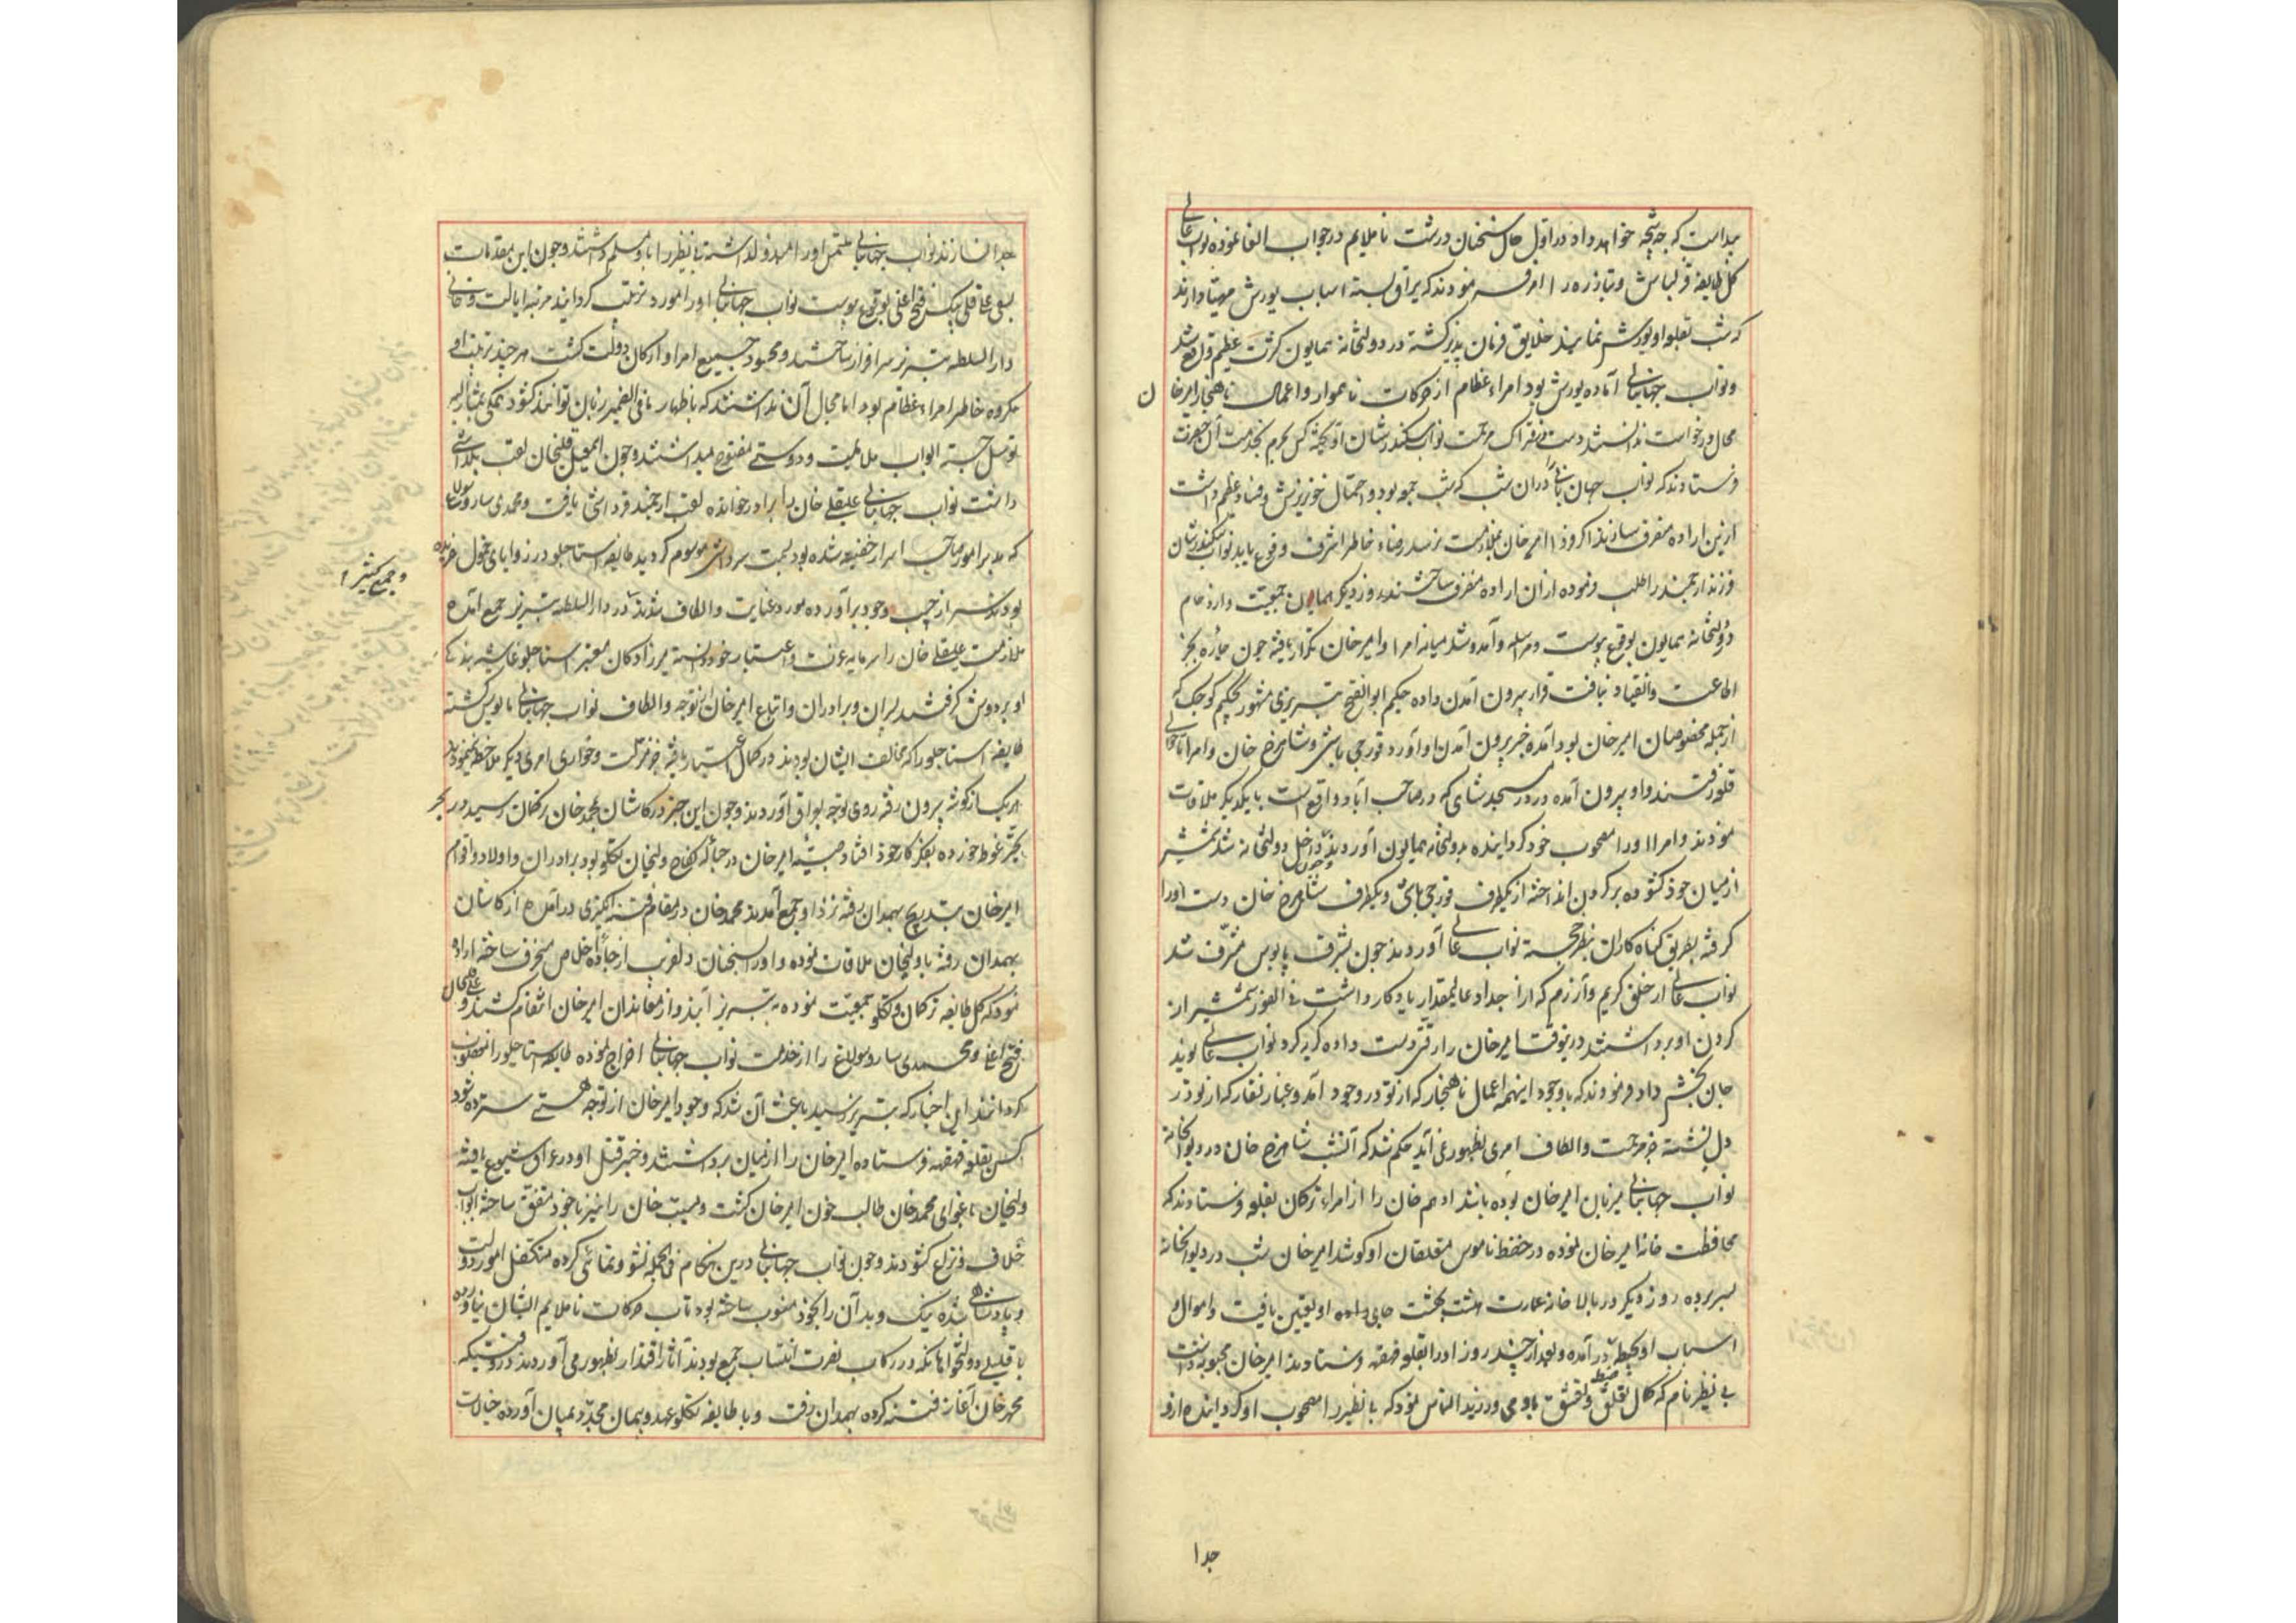 میداست که چه نتیجه خواهد داد در اول حال سخنان درشت ناملایم در جواب القا نموده نواب عالی
کل طایفه قزلباش و تبارزه را امر فرمودند که یراق بسته اسباب یورش مهیا دارند
که شب بقلعه او یورش نمایند خلایق فرمان پذیر گشته در دولتخانه همایون کثرت عظیم واقع شد
و نواب جهانبانی آماده یورش بود امراء عظام از حرکات ناهموار و اعمال ناهنجار امیرخان
محال درخواست ندانستند دست در فتراک مرحمت نواب سکندرشان آویخته کس بحرم بخدمت آن حضرت
فرستادند که نواب جهان بانی را در آن شب که شب جمعه بود و احتمال خونریزش و فساد عظیم داشت
ازین اراده منصرف سازند اگر فردا امیرخان بملازمت نرسد رضاء خاطر اشرف وقوع یابد نواب سکندرشان
فرزند ارجمند را طلب فرموده از آن اراده منصرف ساختند روز دیگر همان جمعیت و ازدحام
در دولتخانه همایون بوقوع پیوست و مراسله و آمد و شد میانه امرا و امیرخان تکرار یافته چون چاره بجز
اطاعت و انقیاد نیافت قرار بیرون آمدن داده حکیم ابوالفتح تبریزی مشهور بحکیم کوچک که
از جمله مخصوصان امیرخان بود آمده خبر بیرون آمدن او آورد قورچی باشی و شاهرخ خان و امرا تا حوالی
قلعه رفتند و او بیرون آمده در در مسجد شاهی که در صاحب آباد واقع است با یکدیگر ملاقات
نمودند و امرا او را مصحوب خود گردانیده بدولتخانه همایون آوردند و چون داخل دولتخانه شد شمشیر
از میان خود گشوده بر گردن انداخته از یکطرف قورچی باشی و یکطرف شاهرخ خان دست او را
گرفته بطریق گناه کاران بنظر خجسته نواب عالی آوردند چون بشرف پابوس مشرف شد
نواب عالی از خلق کریم و آزرم که از اجداد عالیمقدار یادگار داشت فی الفور شمشیر از
گردن او برداشتند درینوقت امیرخان را رقتی دست داده گریه کرد نواب عالی نوید
جان بخشی داد فرمودند که باوجود اینهمه اعمال ناهنجار که از تو در وجود آمد و غبار نقار که از تو در
دل نشسته جز مرحمت و الطاف امری بظهور نمی آید حکم شد که آنشب شاهرخ خان در دیوانخانه
نواب جهانبانی میزبان امیرخان بوده باشد ادهم خان را از امراء ترکمان بقلعه فرستادند که
محافظت خانه امیرخان نموده در حفظ ناموس متعلقان او کوشد امیرخان شب در دیوانخانه
بسر برده روز دیگر در بالا خانه عمارت هشت بهشت جای داده او تعیین یافت و اموال و
اسباب او بحیطه ضبط درآمده و بعد از چند روز او را بقلعه قهقهه فرستادند امیرخان محبوبه داشت
بی نظیر نام که کمال تعلق و تعشق باو می ورزید التماس نمود که بی نظیر را مصحوب او گردانیده ازو
جدا
جدا نسازند نواب جهانبانی ملتمس او را مبذول داشته بی نظیر را باو مسلم داشتند و چون این مقدمات
بسعی علیقلی بیک فتح اغلی بوقوع پیوست نواب جهانبانی او را مورد تربیت گردانیده مرتبه ایالت و خانی
دارالسلطنه تبریز سرافراز ساختند و محسود جمیع امرا و ارکان دولت گشت هر چند تربیت او
مکروه خاطر امراء عظام بود اما مجال آن نداشتند که باظهار ما فی الضمیر زبان توانند گشود همگی بمشارالیه
توسل جسته ابواب ملایمت و دوستی مفتوح میداشتند و چون اسمعیل قلیخان لقب یلداشی
داشت نواب جهانبانی علیقلی خان را برادر خوانده لقب ارجمند قرداشی یافت و محمدی ساروسولاغ
که مدبر امور صاحب اسرار خفیه شده بود بسمت سرداشی موسوم گردید طایفه استاجلو در زوایای خمول خزیده
و جمع کثیر
بودند سر از جیب وجود برآورده مورد عنایت و الطاف شدند در دارالسلطنه تبریز جمع آمده
ملازمت علیقلی خان را سرمایه عزت و اعتبار خود دانسته میرزادگان معتبر استاجلو غاشیه بندگی
او بر دوش گرفتند پسران و برادران و اتباع امیرخان از توجه و الطاف نواب جهانبانی مایوس گشته
طایفه استاجلو را که مخالف ایشان بودند در کمال اعتبار یافته جز مذلت و خواری امری دیگر ملاحظه ننمودند
هر یک از گوشه بیرون رفته روی توجه بعراق آوردند و چون این خبر در کاشان بمحمد خان ترکمان رسید در بحر
تحیر غوطه خورده بفکر کار خود افتاد صبیه امیرخان در حباله نکاح ولیخان تکلو بود برادران و اولاد و اقوام
امیرخان بتدریج بهمدان رفته نزد او جمع آمدند محمد خان در مقام فتنه انگیزی درآمده از کاشان
بهمدان رفته با ولیخان ملاقات نموده و او را بسخنان دلفریب از جاده اخلاص منحرف ساخته اراده
نمود که کل طایفه ترکمان و تکلو جمعیت نموده به تبریز آیند و از معاندان امیرخان انتقام کشند و علیقلی خان
فتح اغلی و محمدی ساروسولاغ را از خدمت نواب جهانبانی اخراج نموده طایفه استاجلو را منکوب
گردانند این اخبار که بتبریز رسید باعث آن شد که وجود امیرخان از لوحه هستی سترده شود
کس بقلعه قهقهه فرستاده امیرخان را از میان برداشتند و خبر قتل او در عراق شیوع یافته
ولیخان باغوای محمد خان طالب خون امیرخان گشت و مسیب خان را نیز با خود متفق ساخته ابواب
خلاف و نزاع گشودند و چون نواب جهانبانی درین هنگام فی الجمله نشو و نمائی کرده متکفل امور دولت
و پادشاهی شده نیک و بد آن را بخود منسوب ساخته بود تاب حرکات ناملایم ایشان نیاورده
با قلیلی دولتخواهان که در رکاب نصرت انتساب جمع بودند آثار اقتدار بظهور می آوردند در وقتیکه
محمد خان آغاز فتنه کرده بهمدان رفت و با طایفه تکلو عهد و پیمان مجدد بمیان آورده خیالات